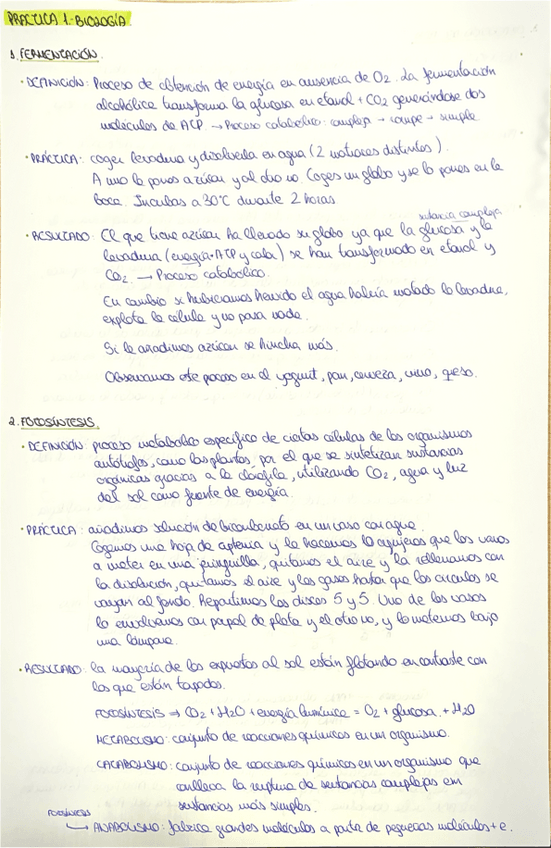 PRÁCTICA 1. BIOLOGÍA
1. FERMENTACIÓN.
· DEFINICIÓN: Proceso de obtención de energía en ausencia de O2. La fermentación
alcohólica transforma la glucosa en etanol + CO2 generándose dos
moléculas de ATP. → Proceso catabólico: complejo → rompe → simple.
· PRÁCTICA: coger levadura y disolverla en agua (2 matraces distintos).
A uno le pones azúcar y al otro no. Coges un globo y se lo pones en la
boca. Incubas a 30°C durante 2 horas
sustancia compleja
· RESULTADO: El que tiene azúcar ha llenado su globo ya que la glucosa y la
levadura (energía·ATP y calor) se han transformado en etanol y
CO2. → Proceso catabólico.
En cambio si hubiéramos hervido el agua habría matado la levadura,
explota la célula y no pasa nada.
Si le añadimos azúcar se hincha más.
Observamos este proceso en el yogurt, pan, cerveza, vino, queso.
2. FOTOSÍNTESIS.
· DEFINICIÓN: proceso metabólico específico de ciertas células de los organismos
autótrofos, como las plantas, por el que se sintetizan sustancias
orgánicas gracias a la clorofila, utilizando CO2, agua y luz
del sol como fuente de energía.
· PRÁCTICA: añadimos solución de bicarbonato en un vaso con agua.
Cogemos una hoja de y le hacemos 10 agujeros que los vamos
a meter en una jeringuilla, quitamos el aire y la rellenamos con
la disolución, quitamos el aire y los gases hasta que los círculos se
vayan al fondo. Repartimos los discos 5 y 5. Uno de los vasos
lo envolvemos con papel de plata y el otro no, y lo metemos bajo
una lámpara.
· RESULTADO: la mayoría de los expuestos al sol están flotando en contraste con
los que están tapados.
FOTOSÍNTESIS → CO2 + H2O + energía lumínica = O2 + glucosa + H2O
METABOLISMO: conjunto de reacciones químicas en un organismo.
CATABOLISMO: conjunto de reacciones químicas en un organismo que
conlleva la ruptura de sustancias complejas en
sustancias más simples.
FOTOSÍNTESIS
→ ANABOLISMO: fabrica grandes moléculas a partir de pequeñas moléculas + e.